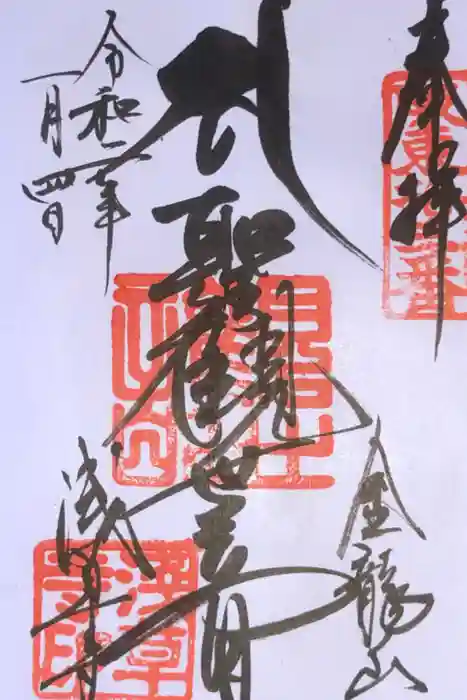 奉拝
金龍山
聖観世音
浅草寺
令和二年
一月四日